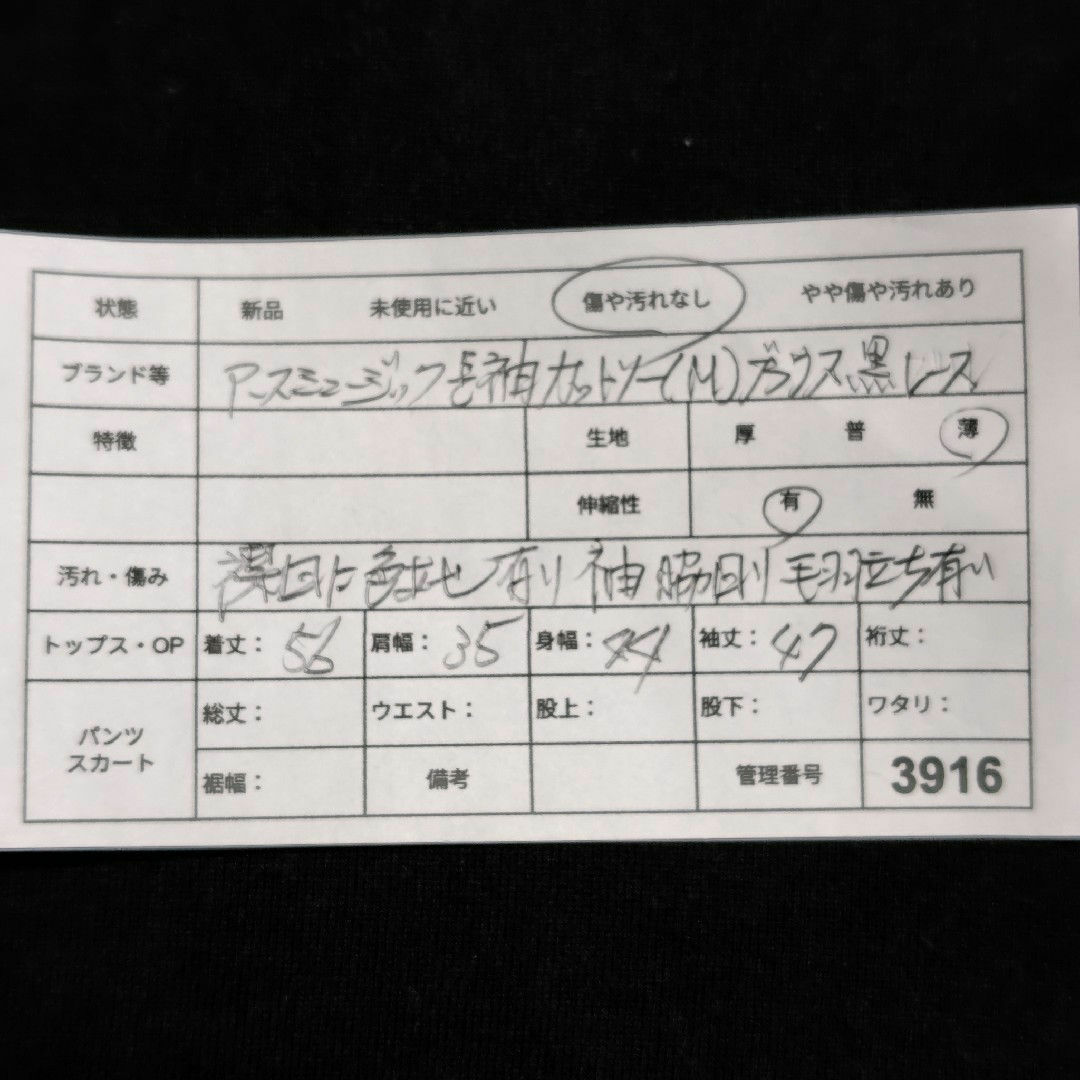 状態 新品 未使用に近い 傷や汚れなし やや傷や汚れあり
ブランド等 アースミュージック長袖カットソー(M)ブラウス黒レース
特徴 生地 厚 普 薄
伸縮性 有 無
汚れ・傷み 襟口に色あせ有り 袖 脇口り 毛羽立ち有り
トップス・OP 着丈: 56 肩幅: 35 身幅: 44 袖丈: 47 裄丈:
パンツ スカート 総丈: ウエスト: 股上: 股下: ワタリ:
裾幅: 備考 管理番号 3916